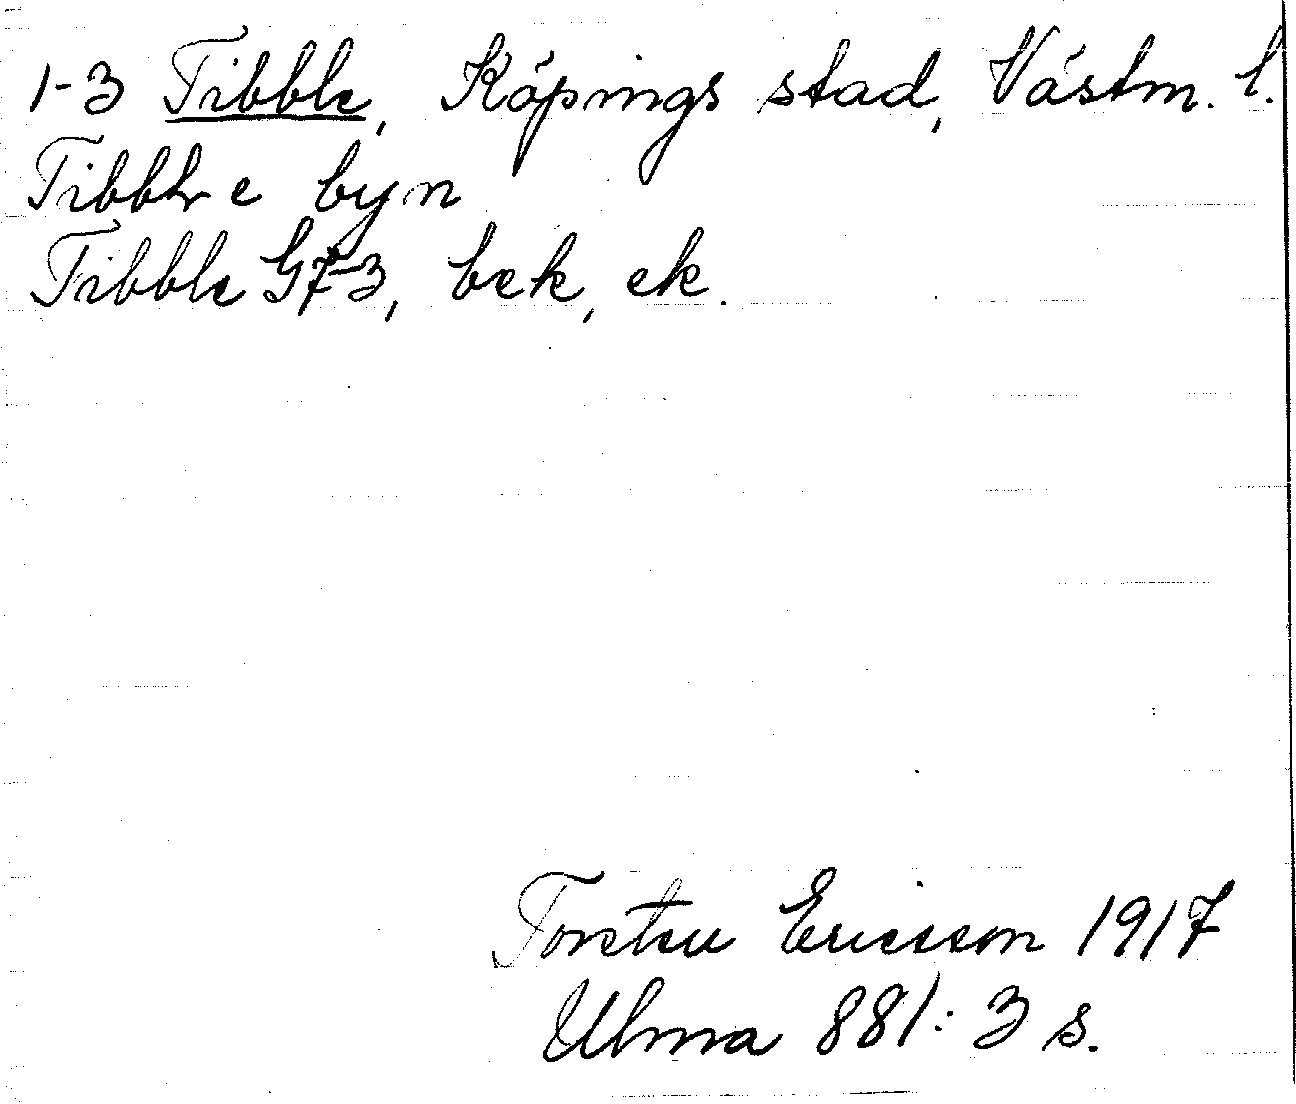 1-3 Tibble, Köpings stad, Västm. l.
Tibble byn
Tibble G7-3, bek, ek.
Torsten Ericsson 1917
Ulma 881: 3 s.